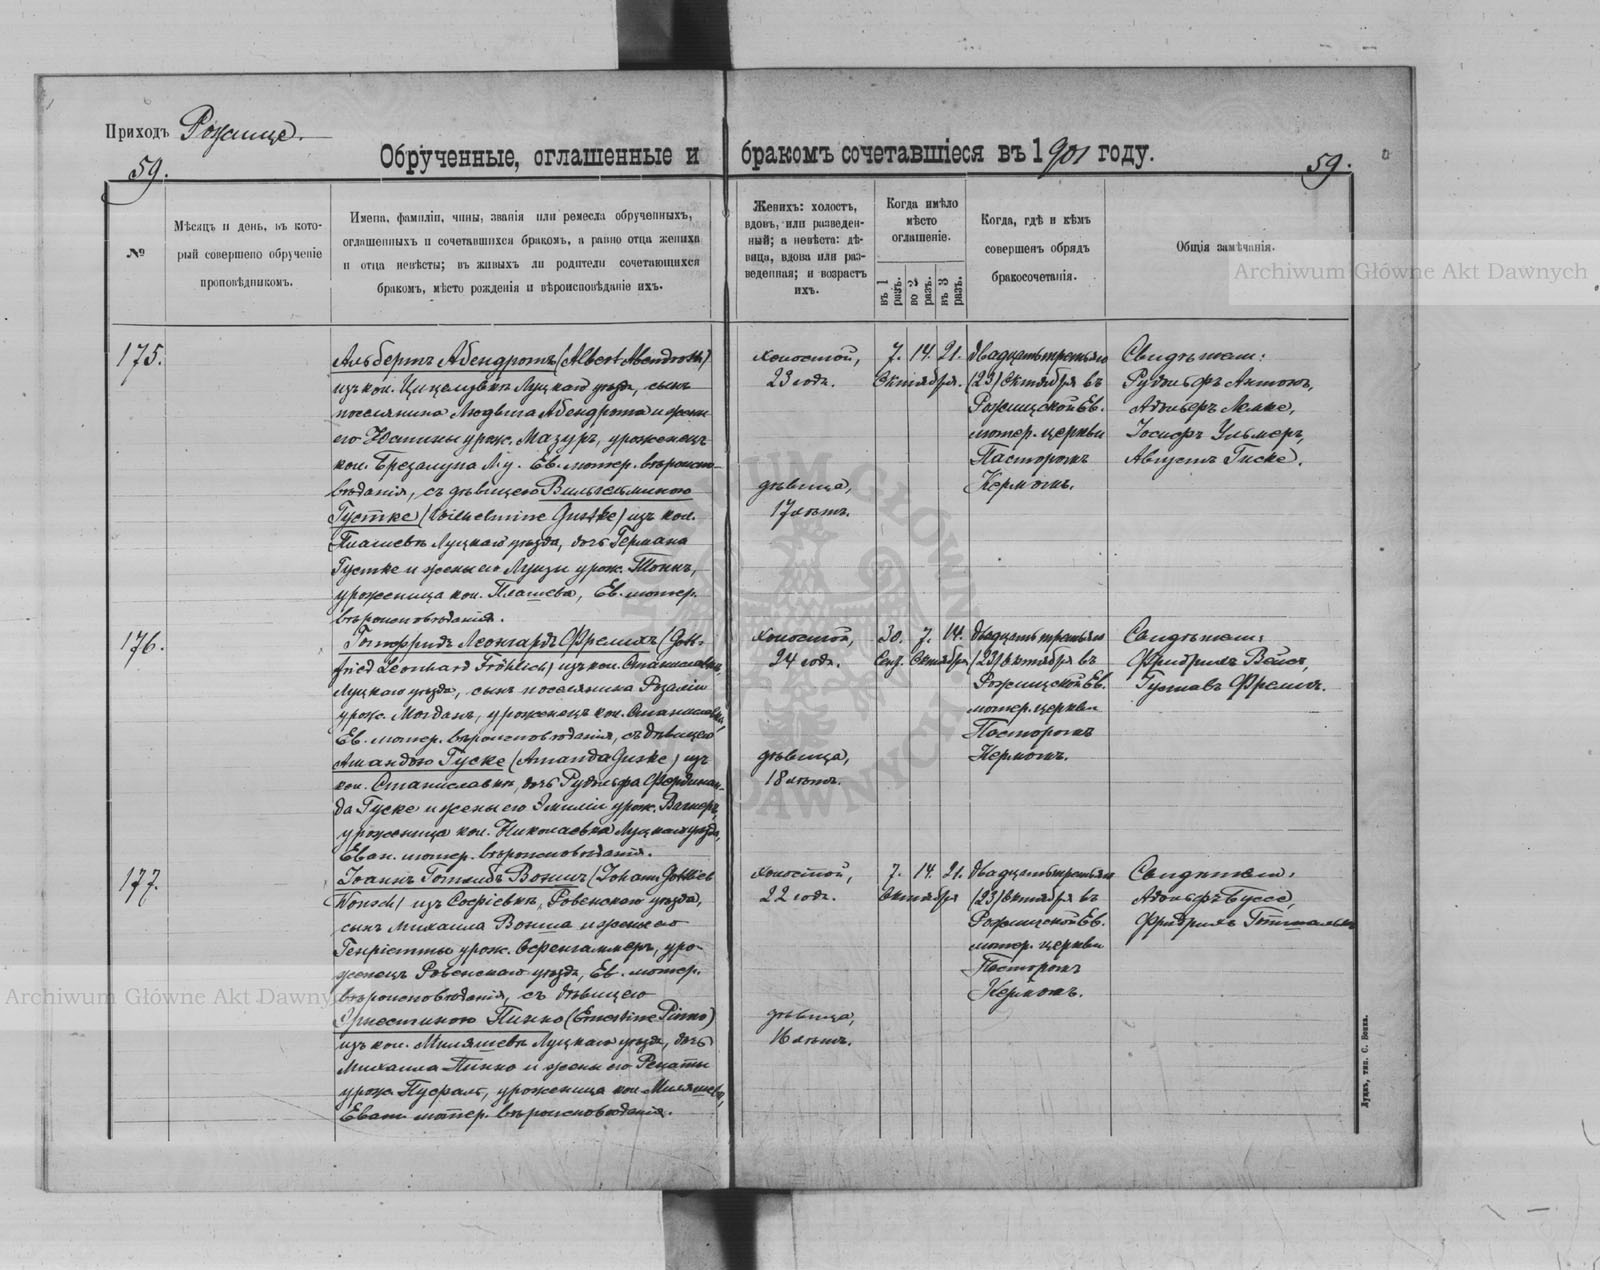 Приходъ Рожище.
59.
Обрученные, оглашенные и бракомъ сочетавшіеся въ 1901 году.
59.
№
Мѣсяцъ и день, въ кото-
рый совершено обрученіе
проповѣдникомъ.
Имена, фамиліи, чины, званія или ремесла обрученныхъ,
оглашенныхъ и сочетавшихся бракомъ, а равно отца жениха
и отца невѣсты; въ живыхъ ли родители сочетающихся
бракомъ, мѣсто рожденія и вѣроисповѣданіе ихъ.
Женихъ: холостъ,
вдовъ, или разведен-
ный; а невѣста: дѣ-
вица, вдова или раз-
веденная; и возрастъ
ихъ.
Когда имѣло
мѣсто
оглашеніе.
въ 1 разъ.
во 2 разъ.
въ 3 разъ.
Когда, гдѣ и кѣмъ
совершенъ обрядъ
бракосочетанія.
Общія замѣчанія.
Archiwum Główne Akt Dawnych
175.
Альбертъ Абендротъ (Albert Abendroth)
изъ кол. Луцкаго уѣзда, сынъ
поселянина Людвига Абендрота и жены
его Юстины урож. Мазуръ, уроженецъ
кол. Брезалупа Л. у. Ев. лютер. вѣроиспо-
вѣданія, съ дѣвицею Вильгельминою
Густке (Wilhelmine Gustke) изъ кол.
Пашева Луцкаго уѣзда, дочь Германа
Густке и жены его Луизы урож. Тонъ,
уроженица кол. Пашева, Ев. лютер.
вѣроисповѣданія.
холостой,
23 года.
дѣвица,
17 лѣтъ.
7. 14. 21.
Октября.
двадцать третьяго
(23) Октября въ
Рожищской Ев.
лютер. церкви
Пасторомъ
Кермомъ.
Свидѣтели:
Рудольфъ Антонъ,
Адольфъ Лемке,
Іосифъ Ульмеръ,
Августъ Гиске.
176.
Готфридъ Леонгардъ Фрелихъ (Gott-
fried Leonhard Fröhlich) изъ кол. Станиславка,
Луцкаго уѣзда, сынъ поселянина Розаліи
урож. Могданъ, уроженецъ кол. Станиславка,
Ев. лютер. вѣроисповѣданія, съ дѣвицею
Амандою Гуске (Amanda Guske) изъ
кол. Станиславка, дочь Рудольфа Фердинан-
да Гуске и жены его Эмиліи урож. Вагнеръ,
уроженица кол. Николаевка Луцкаго уѣзда,
Еван. лютер. вѣроисповѣданія.
холостой,
24 года.
дѣвица,
18 лѣтъ.
30. 7. 14.
Сент. Октября
двадцать третьяго
(23) Октября въ
Рожищской Ев.
лютер. церкви
Пасторомъ
Кермомъ.
Свидѣтели:
Фридрихъ Вейсъ,
Густавъ Фрелихъ.
177.
Іоаннъ Готлибъ Воншъ (Johann Gottlieb
Wonsch) изъ Софіевки, Ровенскаго уѣзда,
сынъ Михаила Вонша и жены его
Генріетты урож. уро-
женецъ Ровенскаго уѣзда, Ев. лютер.
вѣроисповѣданія, съ дѣвицею
Эрнестиною Пинно (Ernestine Pinno)
изъ кол. Миляшева Луцкаго уѣзда, дочь
Михаила Пинно и жены его Ренаты
урож. уроженица кол. Миляшева,
Еван. лютер. вѣроисповѣданія.
холостой,
22 года.
дѣвица,
16 лѣтъ.
7. 14. 21.
Октября
двадцать третьяго
(23) Октября въ
Рожищской Ев.
лютер. церкви
Пасторомъ
Кермомъ.
Свидѣтели:
Адольфъ Буссе,
Фридрихъ Готшалькъ
Archiwum Główne Akt Dawnych
Луцкъ, тип. С. Бокка.